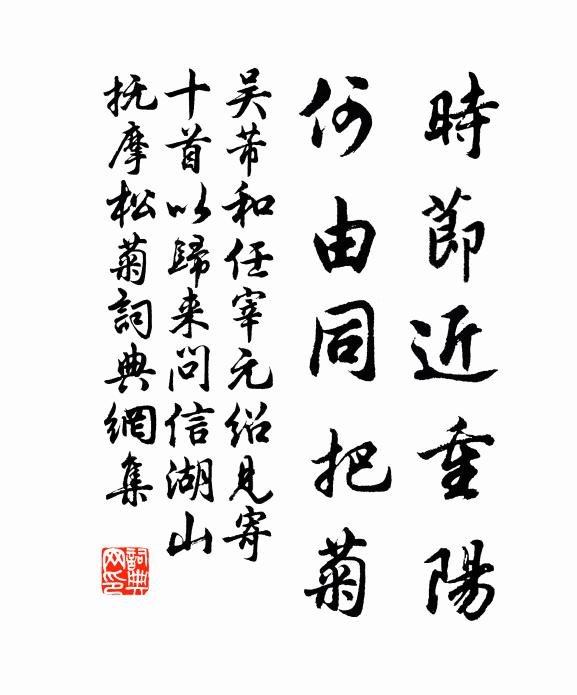 時節近重陽
何由同把菊
吴芾和任宰元绍見寄
十首以歸来问信湖山
抚摩松菊詞典網集
詞典網印